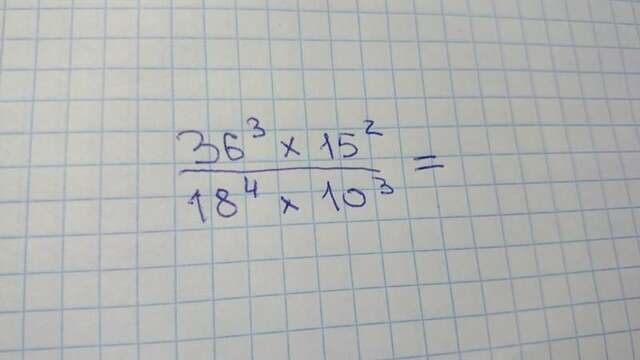 36³ × 15²
18⁴ × 10³ =